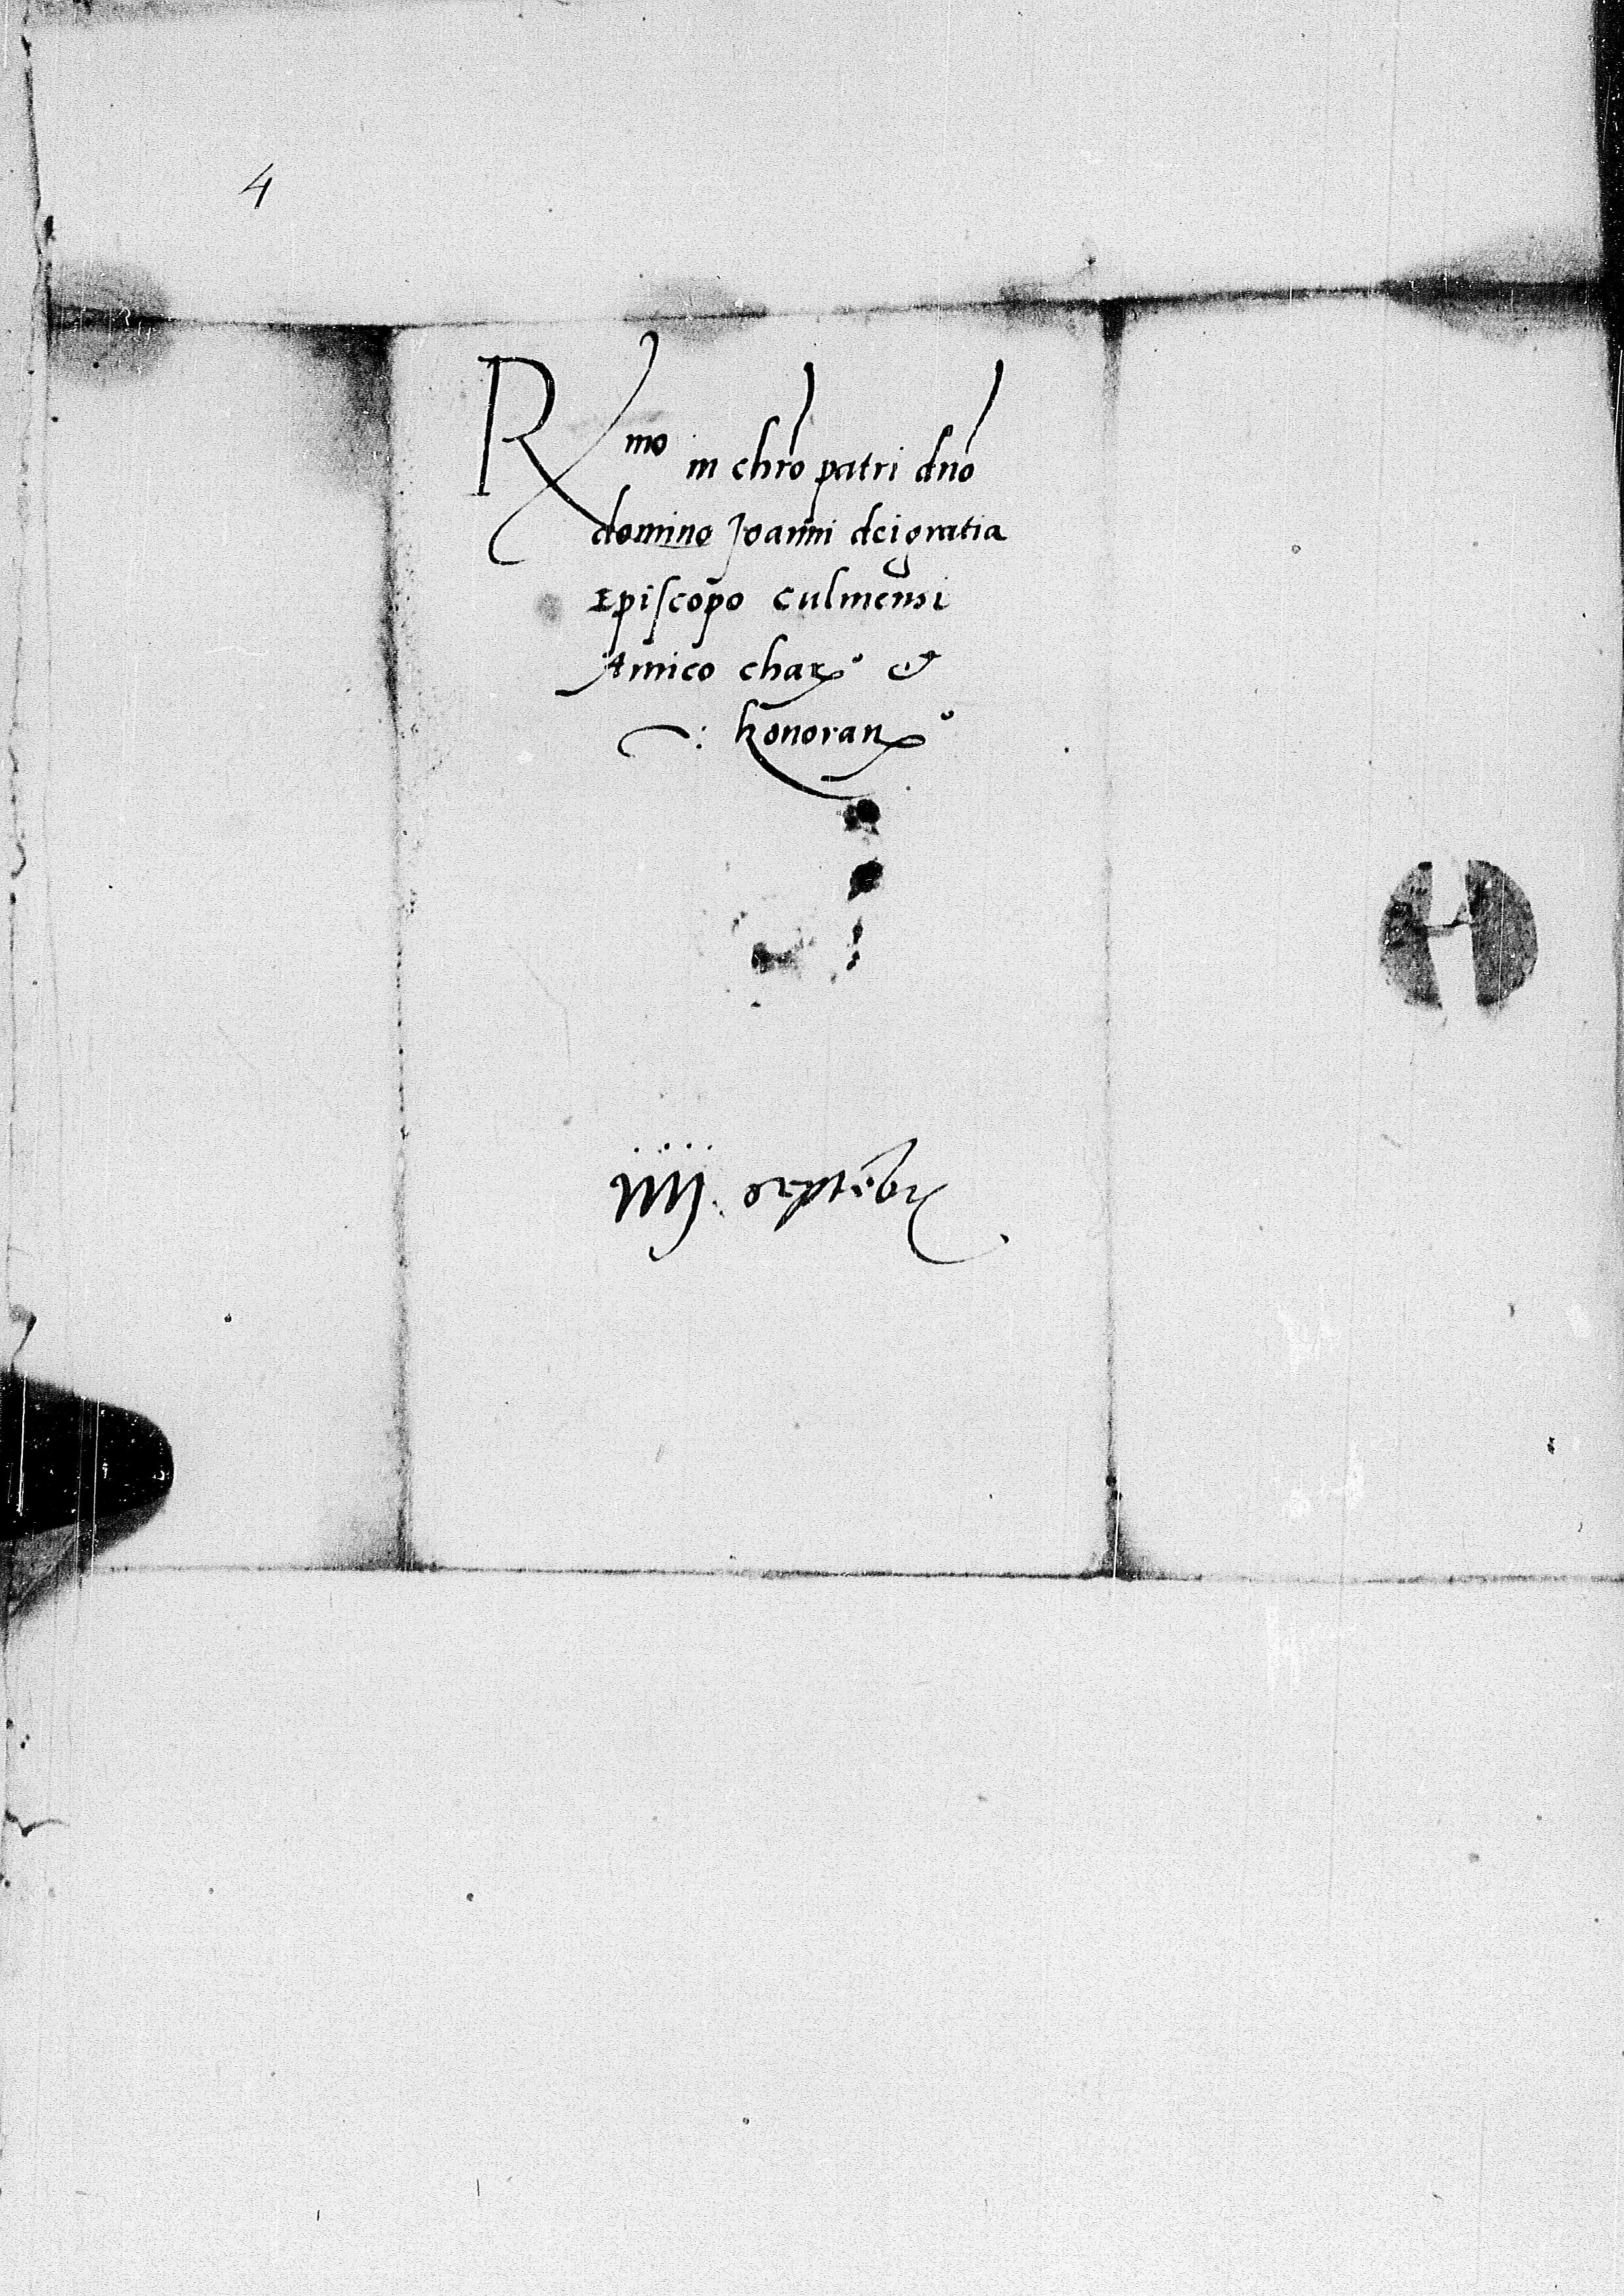 4
Rmo in chro patri dno
domino Joanni dei gratia
Episcopo Culmensi
Amico charo &
honoran
iiij. Septebr